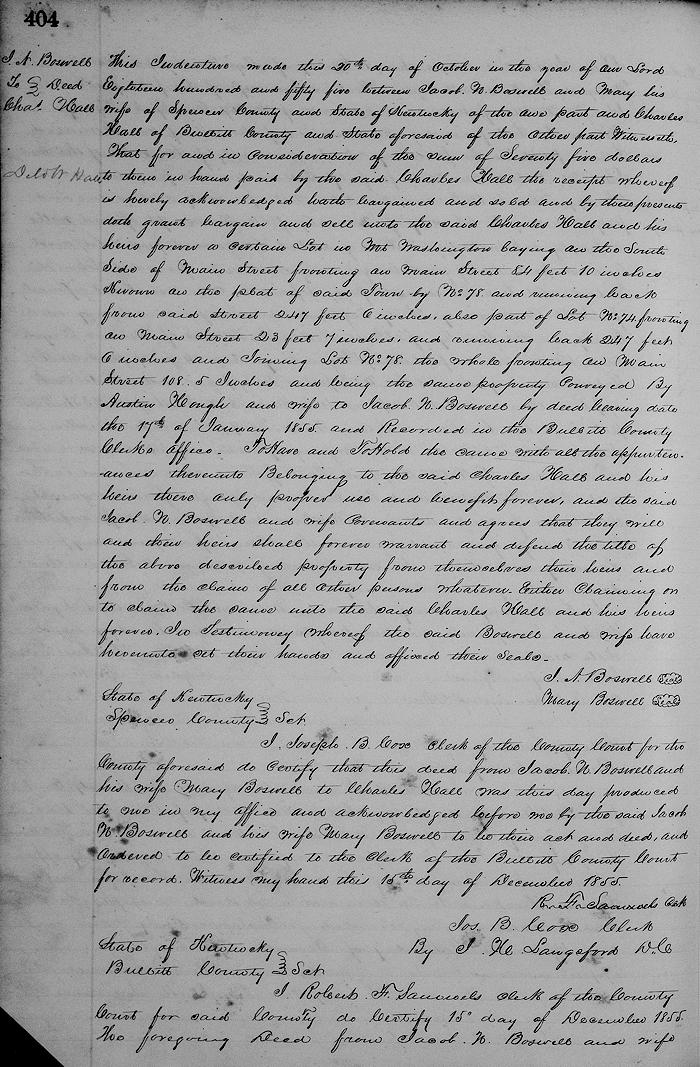 404
J. N. Boswell
To } Deed
Chas. Hall
Deld W Hall
This Indenture made this 20th day of October in the year of our Lord
Eighteen hundred and fifty five between Jacob. N. Boswell and Mary his
wife of Spencer County and State of Kentucky of the one part and Charles
Hall of Bullitt County and State aforesaid of the other part Witnesseth,
That for and in Consideration of the sum of Seventy five dollars
to them in hand paid by the said Charles Hall the receipt whereof
is hereby acknowledged hath bargained and sold and by these presents
doth grant bargain and sell unto the said Charles Hall and his
heirs forever a certain Lot in Mt Washington laying on the South
Side of Main Street fronting on Main Street 84 feet 10 inches
Known on the plat of said Town by No 78 and running back
from said street 247 feet 6 inches, also part of Lot No 74 fronting
on Main Street 23 feet 7 inches, and running back 247 feet
6 inches and Joining Lot No 78. the whole fronting on Main
Street 108. 5 Inches and being the same property Conveyed By
Austin Hough and wife to Jacob. N. Boswell by deed bearing date
the 17th of January 1855 and Recorded in the Bullitt County
Clerks office. To Have and To Hold the same with all the appurten-
ances thereunto Belonging to the said Charles Hall and his
heirs there only proper use and benefit forever, and the said
Jacob. N. Boswell and wife Covenants and agrees that they will
and their heirs shall forever warrant and defend the title of
the above described property from themselves their heirs and
from the claim of all other persons whatever Either Claiming or
to claim the same unto the said Charles Hall and his heirs
forever. In Testimoney whereof the said Boswell and wife have
hereunto set their hands and affixed their Seals.
J. N. Boswell Seal
Mary Boswell Seal
State of Kentucky
Spencer County } Sct
I. Joseph. B. Cox Clerk of the County Court for the
County aforesaid do Certify that this deed from Jacob. N. Boswell and
his wife Mary Boswell to Charles Hall was this day produced
to me in my office and acknowledged before me by the said Jacob
N. Boswell and his wife Mary Boswell to be their act and deed, and
Ordered to be certified to the Clerk of the Bullitt County Court
for record. Witness my hand this 15th day of December 1855.
R. F. Samuels Clk
Jos. B. Cox Clerk
By J. H. Langsford D.C
State of Kentucky
Bullitt County } Sct
I Robert. F. Samuels Clerk of the County
Court for said County do Certify 15" day of December 1855.
the foregoing Deed from Jacob. N. Boswell and wife